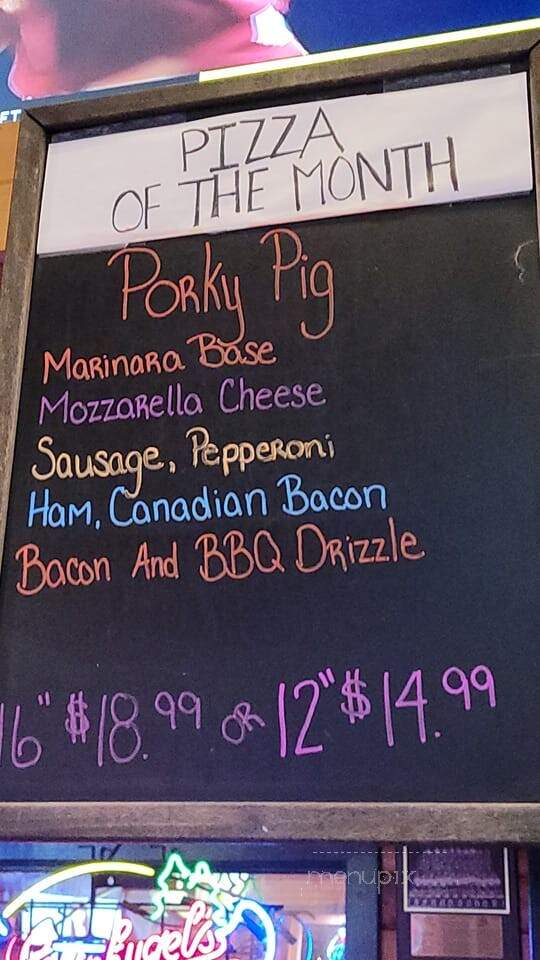 PIZZA
OF THE MONTH
Porky Pig
Marinara Base
Mozzarella Cheese
Sausage, Pepperoni
Ham, Canadian Bacon
Bacon And BBQ Drizzle
16" $18.99 OR 12" $14.99
menupix